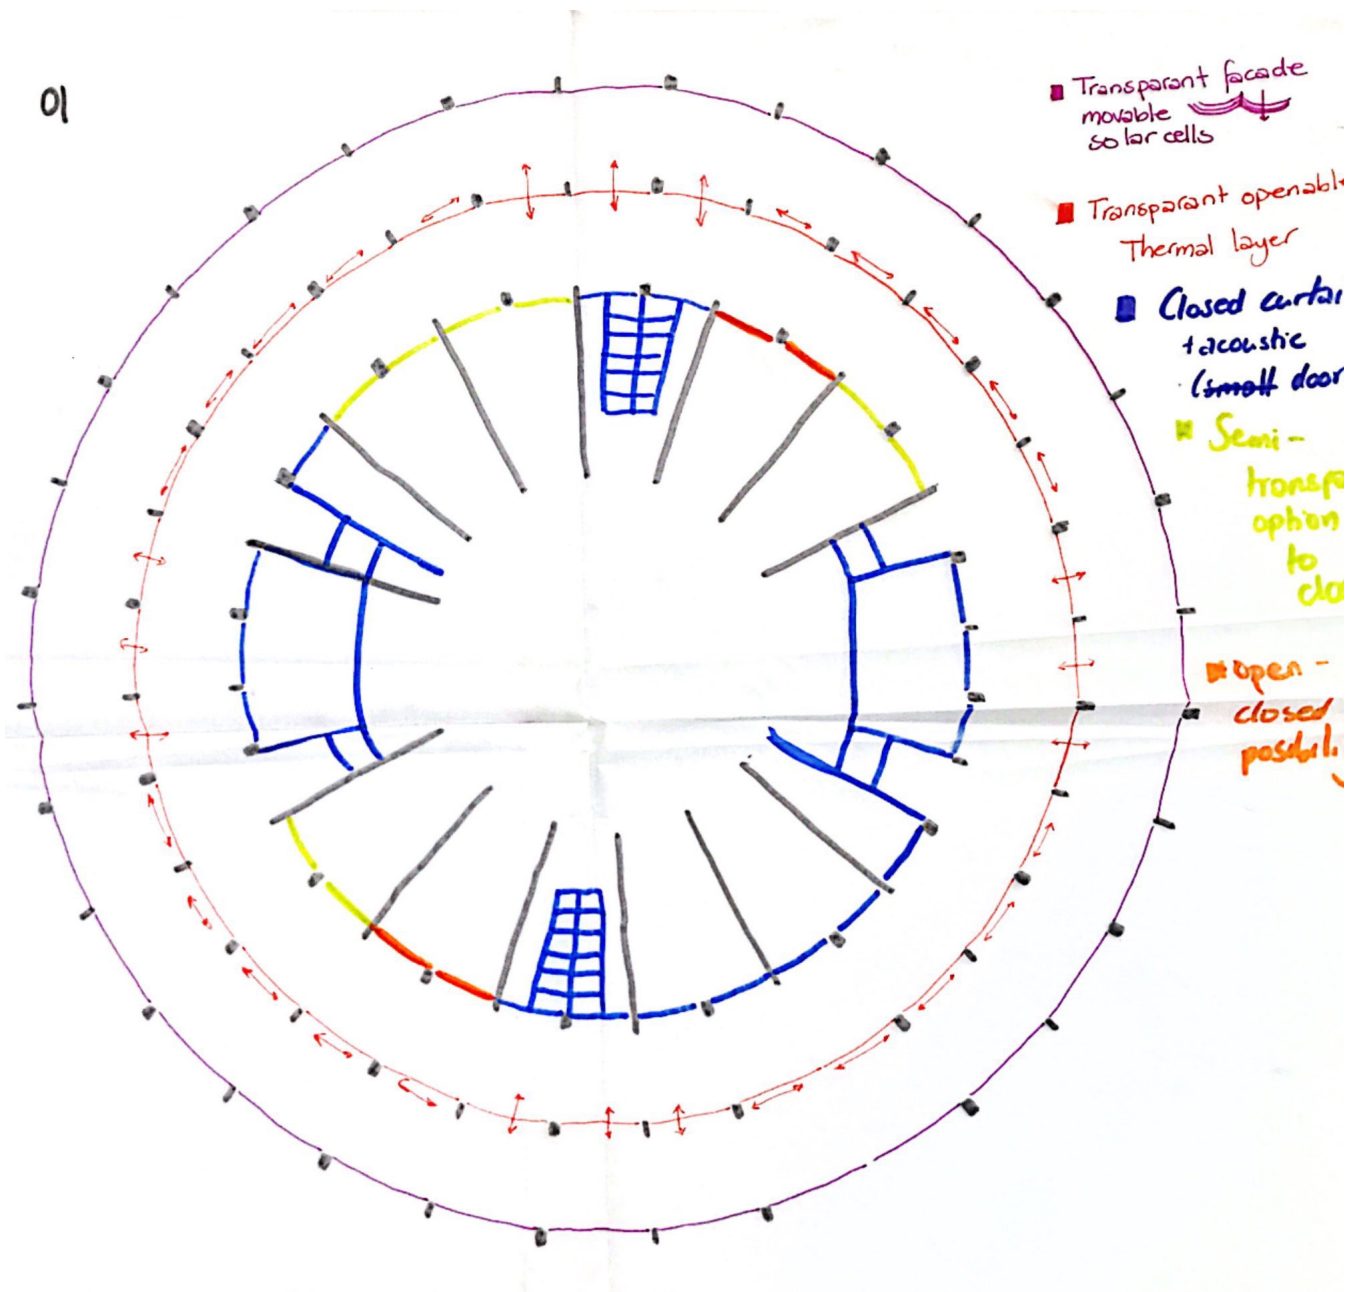 01
Transparant facade
movable
solar cells
Transparant openabl
Thermal layer
Closed curtai
+acoustic
(small door
Semi-
transpa
option
to
clo
open-
closed
posibili